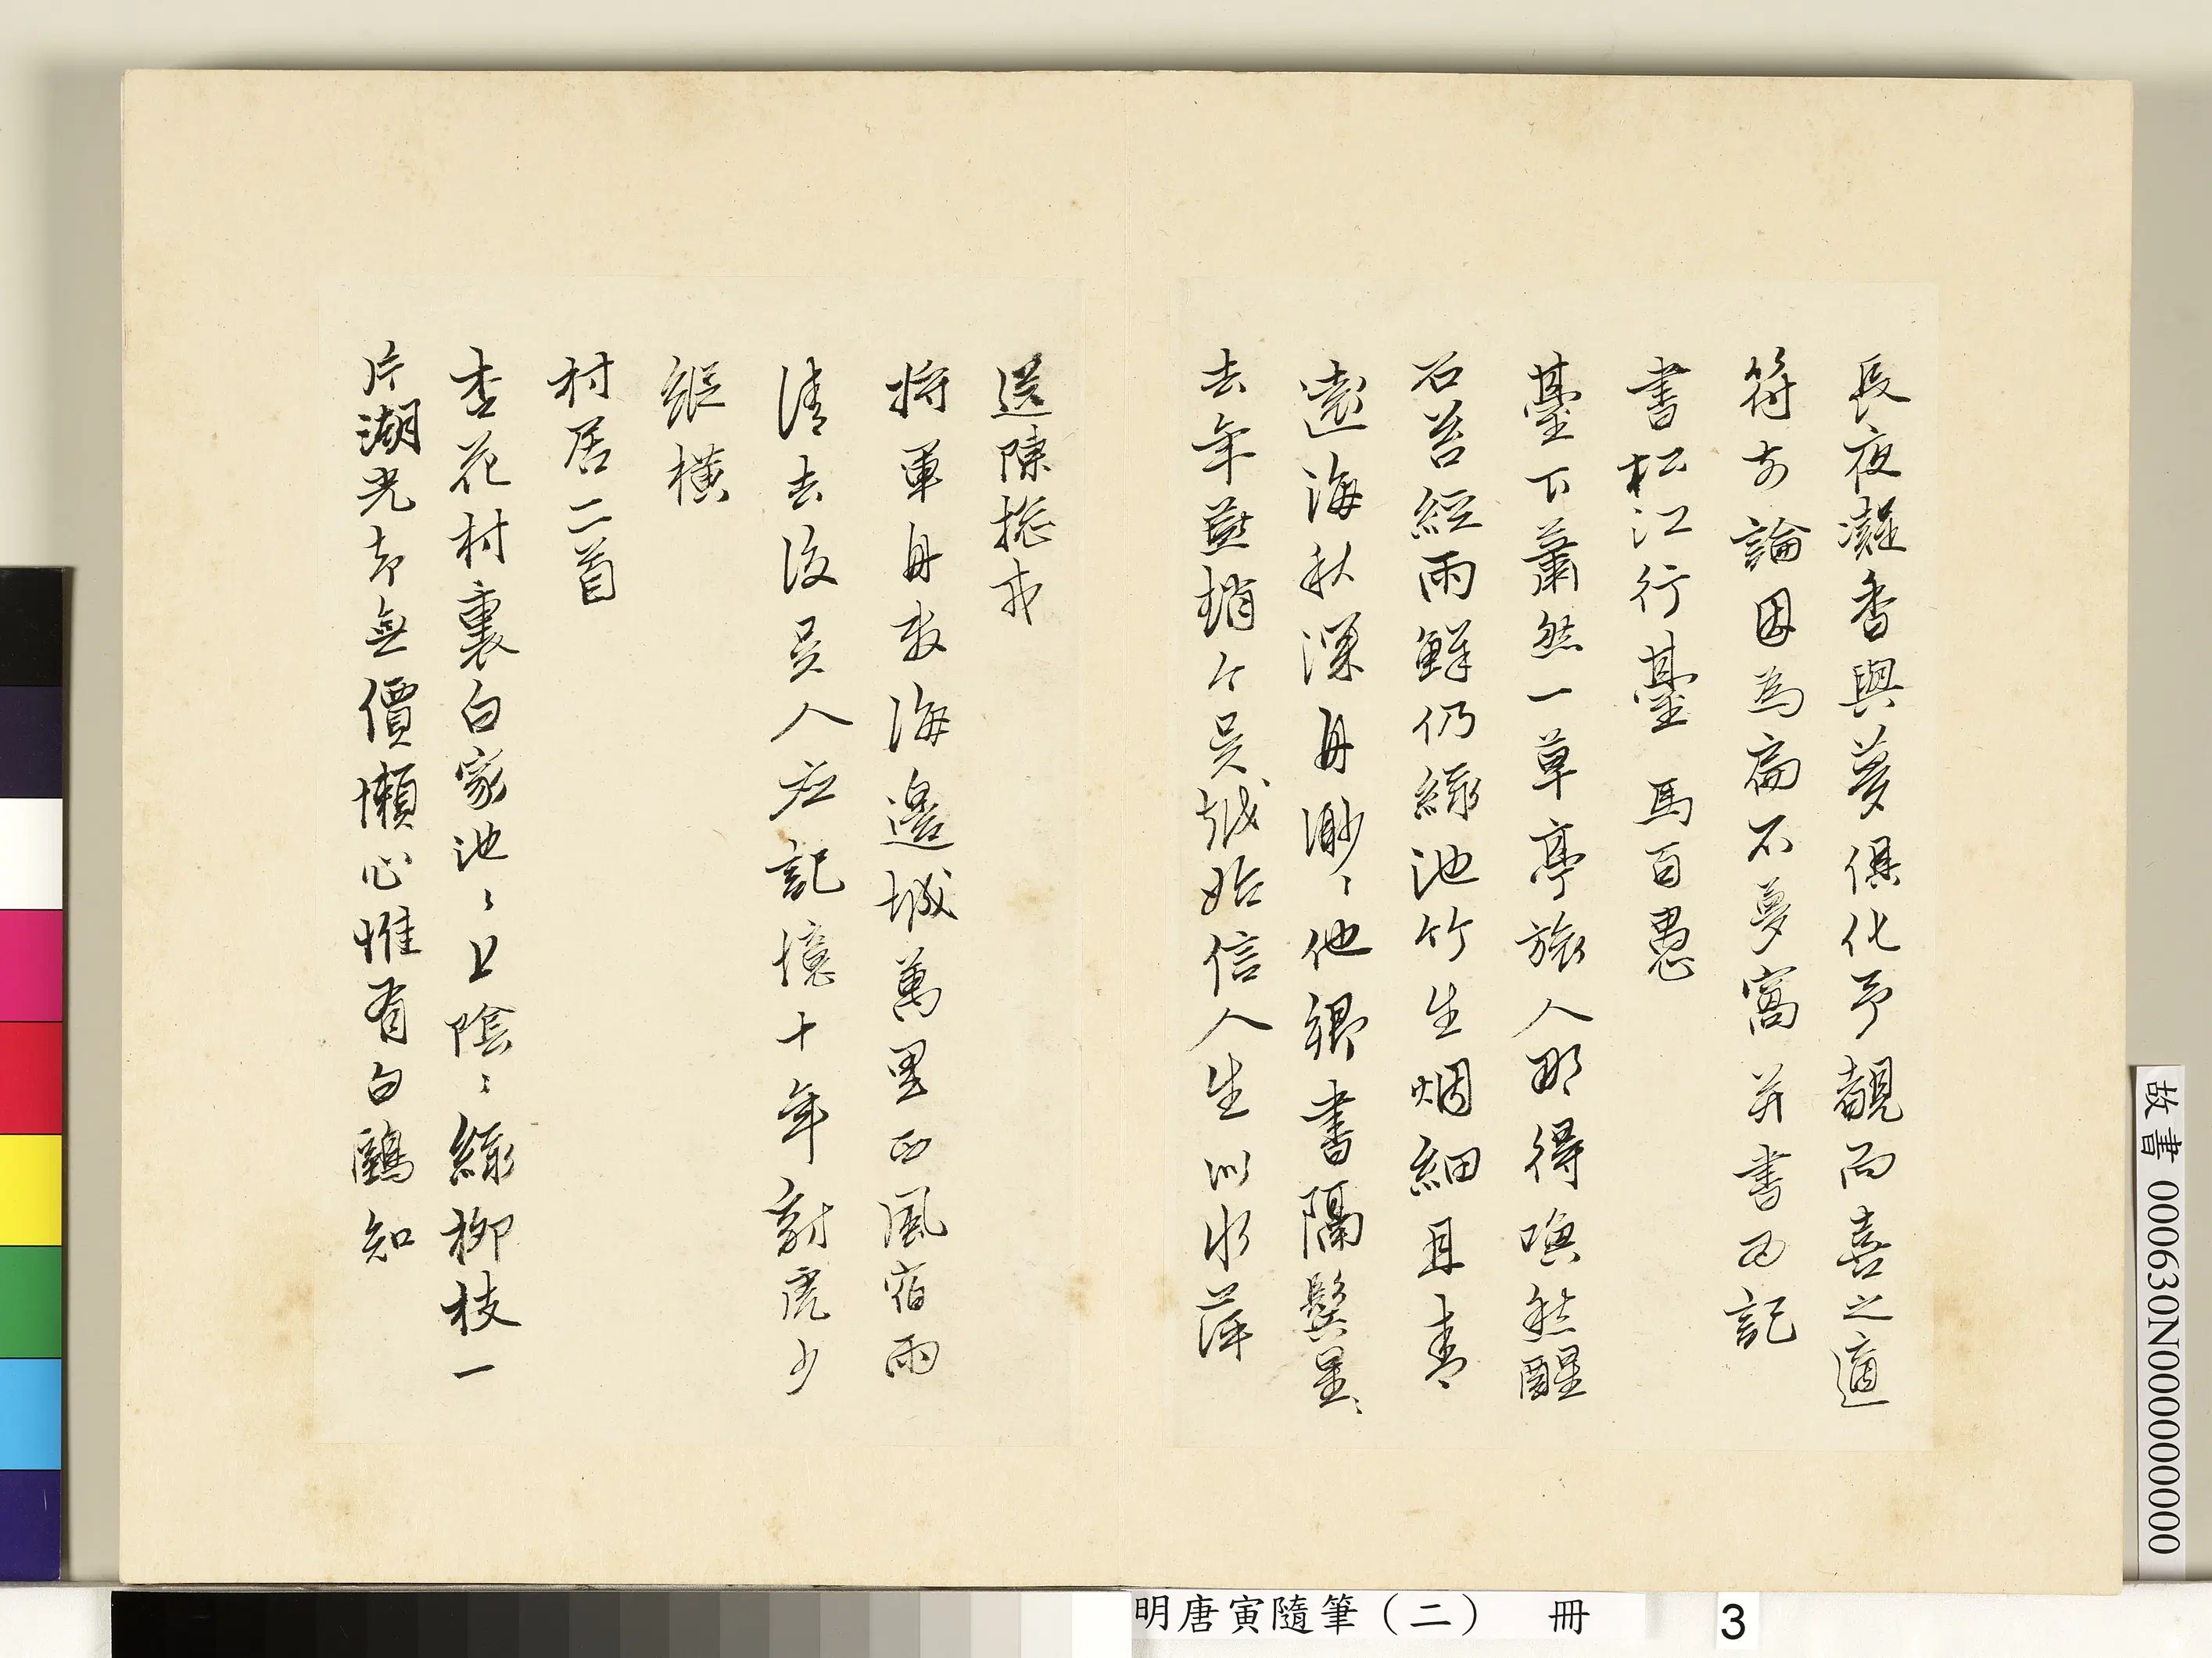 長夜凝香與夢俱化予覩而喜之適
符前論因為扁不夢窩并書為記
書松江行臺 馬百愚
臺下蕭然一草亭旅人那得喚愁醒
石苔經雨鮮仍綠池竹生烟細且青
遠海秋深舟渺〻他鄉書隔鬢星〻
去年燕今吳越始信人生似水萍
送陳總戎
將軍舟發海邊城萬里西風宿雨
清去後吳人應記憶十年豺虎少
縱橫
村居二首
杏花村裏白家池〻上陰〻綠柳枝一
片湖光却無價懶心惟有白鷗知
故書 000630N000000000
明唐寅隨筆（二） 冊 3